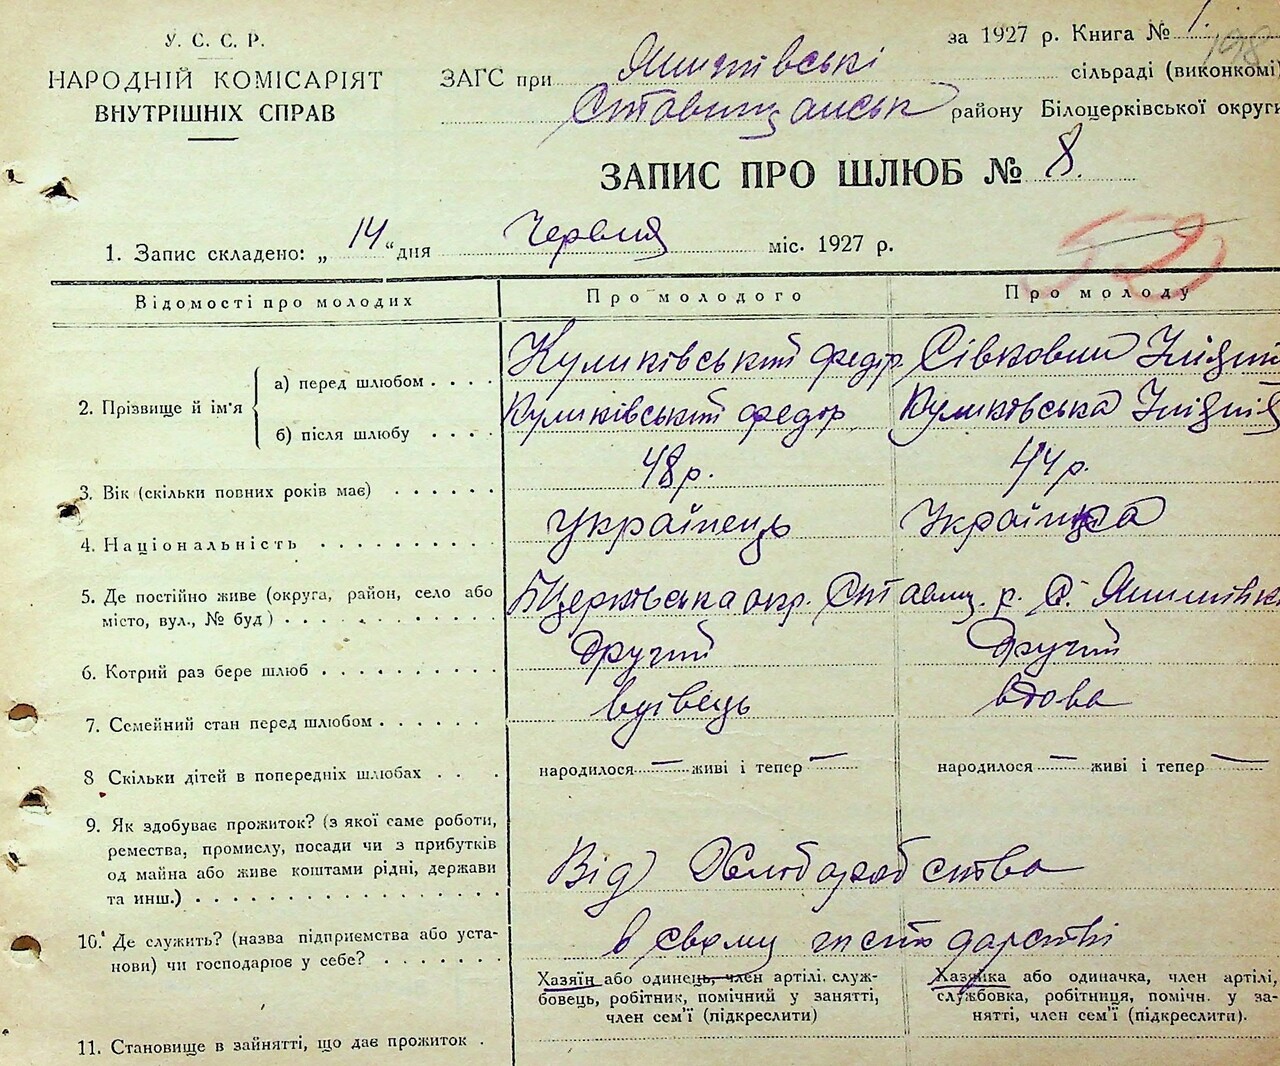 У. С. С. Р.
НАРОДНІЙ КОМІСАРІЯТ
ВНУТРІШНІХ СПРАВ
за 1927 р. Книга № 1.
198
ЗАГС при Янишівські сільраді (виконкомі)
Ставищанськ району Білоцерківської округи
ЗАПИС ПРО ШЛЮБ № 8.
1. Запис складено: „ 14 “ дня Червня міс. 1927 р.
52
Відомості про молодих
Про молодого
Про молоду
2. Прізвище й ім'я
а) перед шлюбом . . . .
Куликівський Федір
Сівковий
б) після шлюбу . . . .
Куликівський Федор
Куликовська
3. Вік (скільки повних років має) . . . . . .
48 р.
44 р.
4. Національність . . . . . . . . .
українець
Українка
5. Де постійно живе (округа, район, село або
місто, вул., № буд) . . . . . . . . . . .
БЦерківська окр. Ставищ. р. С. Янишівка
6. Котрий раз бере шлюб . . . . . . . . .
другий
другий
7. Семейний стан перед шлюбом . . . . . .
вдівець
вдова
8 Скільки дітей в попередніх шлюбах . . .
народилося — живі і тепер —
народилося — живі і тепер —
9. Як здобуває прожиток? (з якої саме роботи,
ремества, промислу, посади чи з прибутків
од майна або живе коштами рідні, держави
та инш.) . . . . . . . . . . . . . . .
Від Хліборобства
10. Де служить? (назва підприємства або уста-
нови) чи господарює у себе? . . . . . . .
в свому господарстві
Хазяїн або одинець, член артілі, служ-
бовець, робітник, помічний у занятті,
член сем'ї (підкреслити)
Хазяйка або одиначка, член артілі,
службовка, робітниця, помічн. у за-
нятті, член сем'ї (підкреслити).
11. Становище в зайнятті, що дає прожиток .